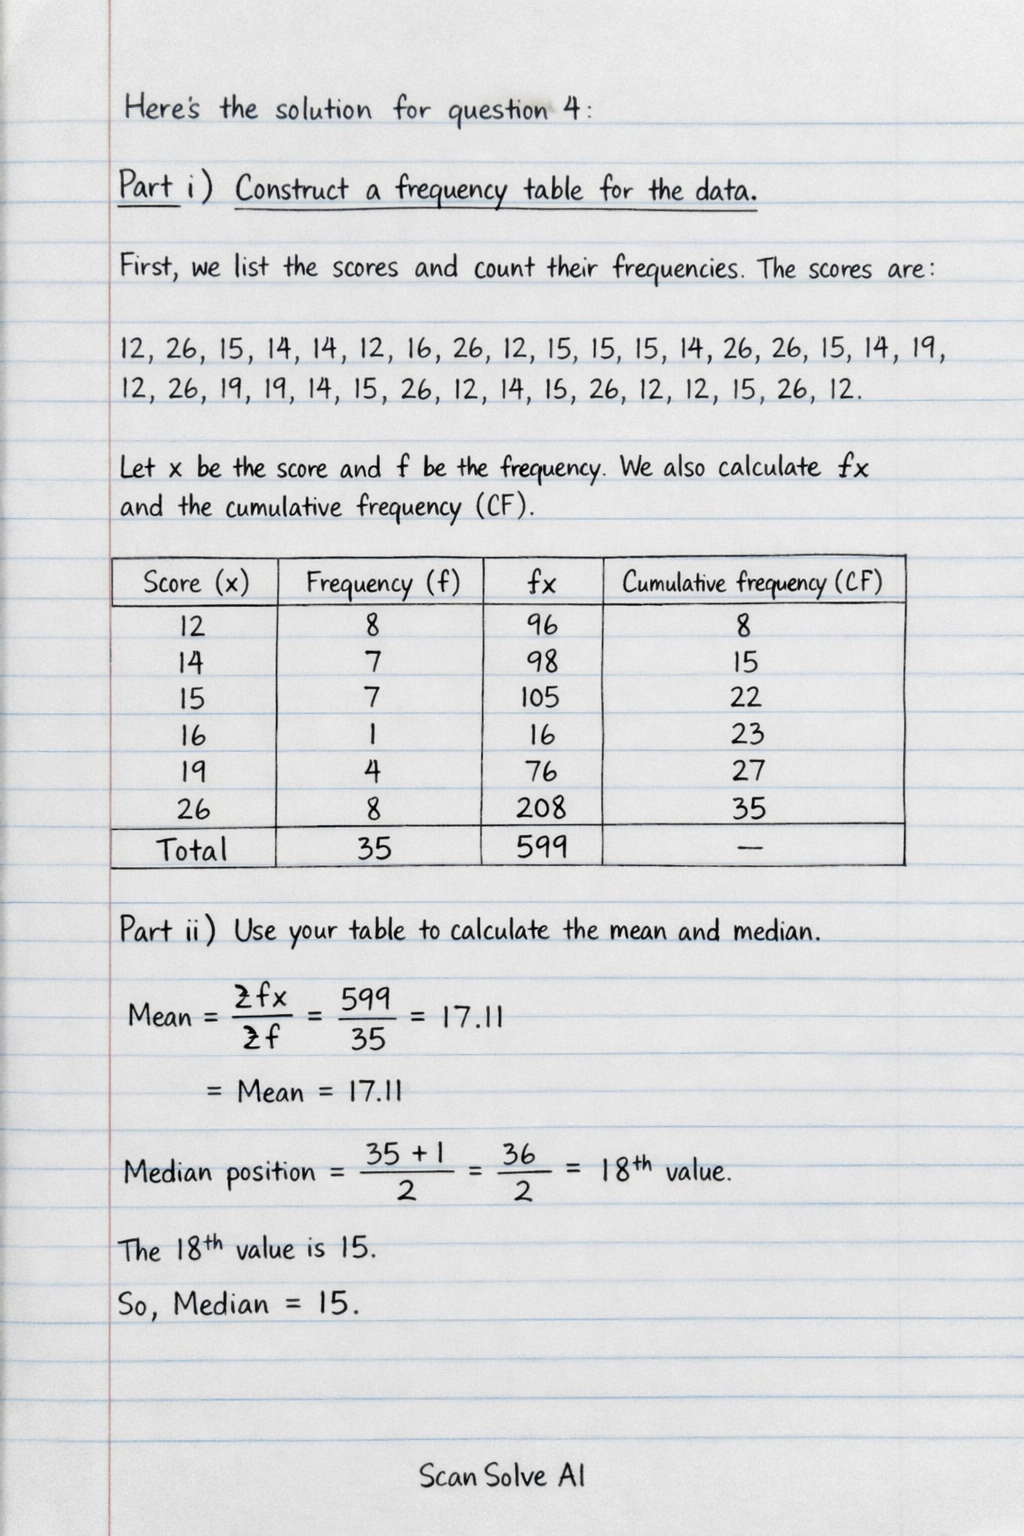 Here's the solution for question 4:
Part i) Construct a frequency table for the data.
First, we list the scores and count their frequencies. The scores are:
12, 26, 15, 14, 14, 12, 16, 26, 12, 15, 15, 15, 14, 26, 26, 15, 14, 19,
12, 26, 19, 19, 14, 15, 26, 12, 14, 15, 26, 12, 12, 15, 26, 12.
Let x be the score and f be the frequency. We also calculate fx
and the cumulative frequency (CF).
Score (x) Frequency (f) fx Cumulative frequency (CF)
12 8 96 8
14 7 98 15
15 7 105 22
16 1 16 23
19 4 76 27
26 8 208 35
Total 35 599 —
Part ii) Use your table to calculate the mean and median.
Mean = Σfx / Σf = 599 / 35 = 17.11
= Mean = 17.11
Median position = 35 + 1 / 2 = 36 / 2 = 18th value.
The 18th value is 15.
So, Median = 15.
Scan Solve AI